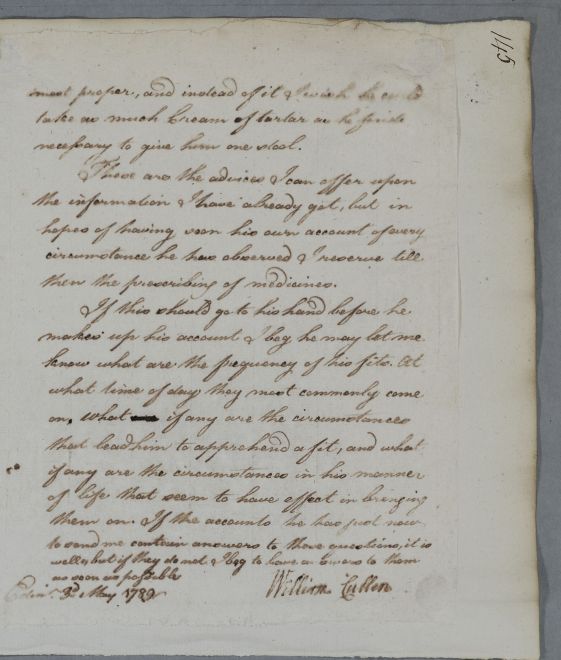 1145
most proper, and instead of it I wish he could
take as much Cream of tartar as he finds
necessary to give him one stool.
These are the advices I can offer upon
the information I have already got, but in
hopes of having soon his own account of every
circumstance he has observed I reserve till
then the prescribing of medicines.
If this should go to his hand before he
makes up his account I beg he may let me
know what are the frequency of his fits. At
what time of day they most commonly come
on, what if any are the circumstances
that lead him to apprehend a fit, and what
if any are the circumstances in his manner
of life that seem to have effect in bringing
them on. If the accounts he has just now
to send me contain answers to these questions, it is
well, but if they do not I beg to have answers to them
as soon as possible
William Cullen
Edinr. 3d. May